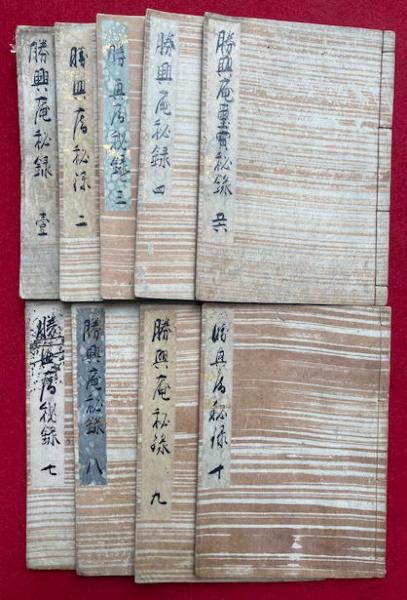 勝興庵秘録 壹
勝興庵秘録 二
勝興庵秘録 三
勝興庵秘録 四
勝興庵靈寶秘錄 五六
勝興庵秘録 七
勝興庵秘録 八
勝興庵秘録 九
勝興庵秘録 十